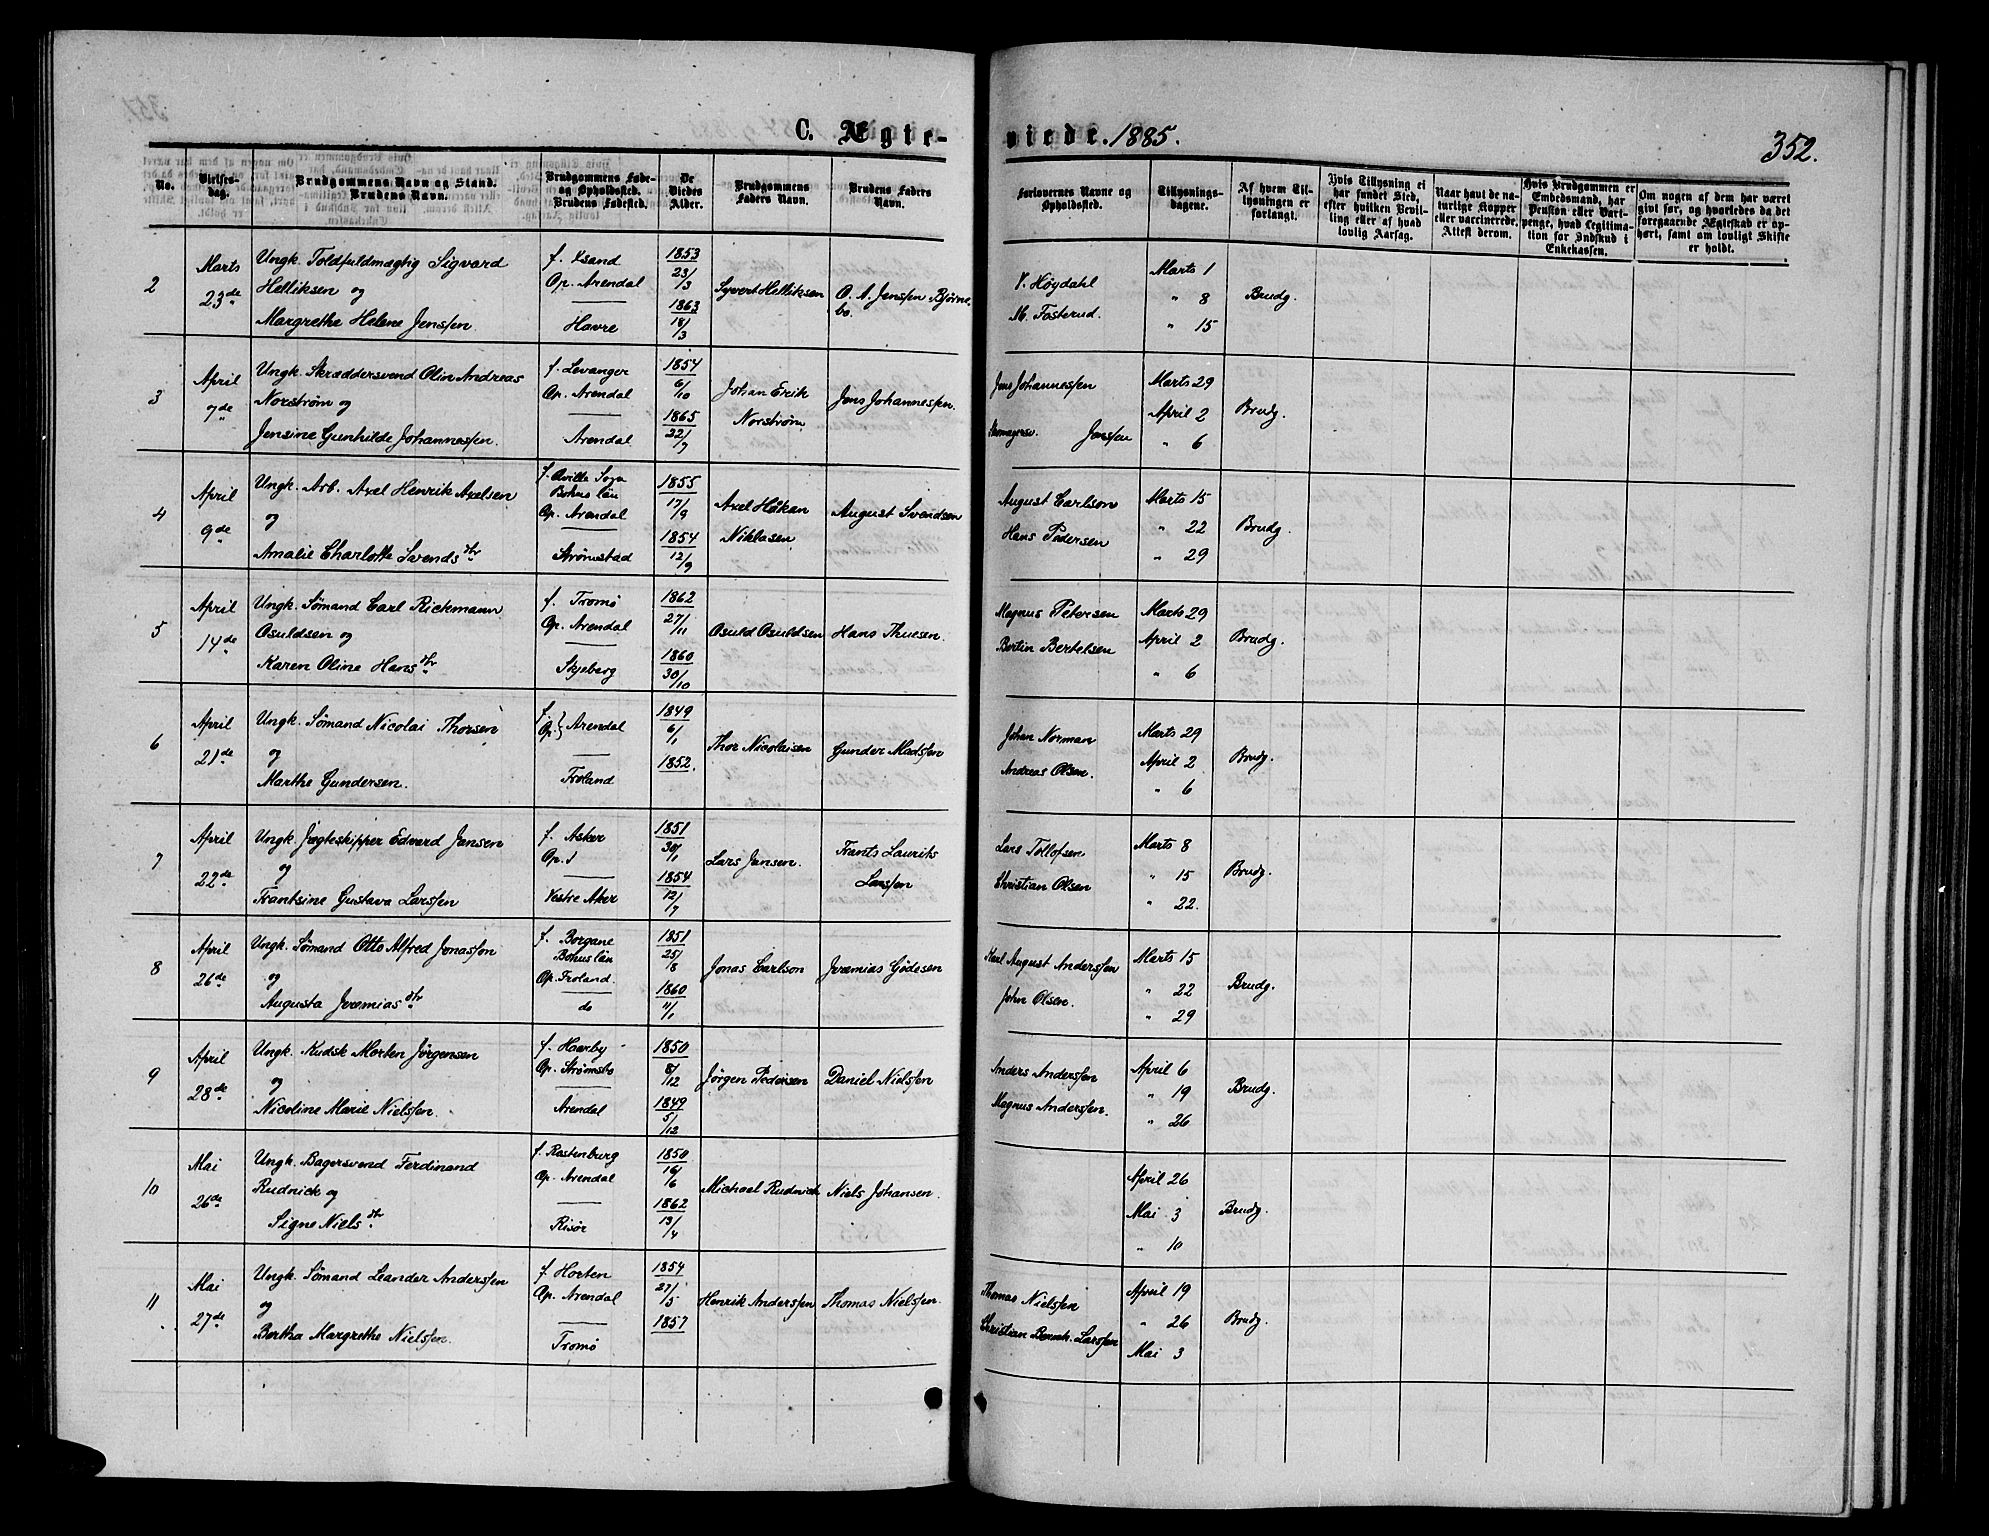 C. Ægte-
viede. 1885.
352.
No.
Vielses-
dag.
Brudgommens Navn og Stand.
Brudens Navn.
Brudgommens Føde-
og Opholdsted.
Brudens Fødested.
De
Viedes
Alder.
Brudgommens
Faders Navn.
Brudens Faders
Navn.
Forlovernes Navne og
Opholdsted.
Tillysnings-
dagene.
Af hvem Til-
lysningen er
forlangt.
Hvis Tillysning ei
har fundet Sted,
efter hvilken Bevil-
ling eller af hvad
lovlig Aarsag.
Naar havt de na-
turlige Kopper
eller vaccinerede.
Attest derom.
Hvis Brudgommen er
Embedsmand, har
Pension eller Vart-
penge, hvad Legitima-
tion for Indskud i
Enkekassen.
Om nogen af dem har været
gift før, og hvorledes da det
foregaaende Ægteskab er op-
hørt, samt om lovligt Skifte
er holdt.
2
Marts
23de
Ungk. Toldfuldmægtig Sigvard
Helliksen og
Margrethe Helene Jenssen
f. Xsand
Op. Arendal
Havre
1853
23/3
1863
18/3
Syvert Helliksen
O. A. Jenssen Bjørne-
bo.
V. Høydahl
M. Fosterud.
Marts 1
" 8
" 15
Brudg.
3
April
7de
Ungk. Skræddersvend Olin Andreas
Norstrøm og
Jensine Gunhilde Johannessen.
f. Levanger
Op. Arendal
Arendal
1854
6/10
1865
22/7
Johan Erik
Norstrøm
Jens Johannessen.
Jens Johannessen
Skomagersv. Jenssen
Marts 29
April 2
" 6
Brudg.
4
April
9de
Ungk. Arb. Axel Henrik Axelsen
og
Amalie Charlotte Svendsdtr
f. Qville Sogn
Bohus län
Op. Arendal
Strømstad
1855
17/9
1854
12/9
Axel Håkan
Niklasen
August Svendsen
August Carlson
Hans Pedersen
Marts 15
" 22
" 29
Brudg.
5
April
14de
Ungk. Sømand Carl Rickmann
Osuldsen og
Karen Oline Hansdtr
f. Tromø
Op. Arendal
Skjeberg
1862
27/11
1860
30/10
Osuld Osuldsen
Hans Thuesen.
Magnus Petersen
Bertin Bertelsen
Marts 29
April 2
" 6
Brudg.
6
April
21de
Ungk. Sømand Nicolai Thorsen
og
Marthe Gundersen.
f. Op. } Arendal
Froland
1849
6/1
1852.
Thor Nicolaisen
Gunder Madssen
Johan Norman
Andreas Olsen.
Marts 29
April 2
" 6
Brudg.
7
April
22de
Ungk. Jægteskipper Edvard Jansen
og
Frantsine Gustava Larssen
f. Asker
Op. d
Vestre Aker
1851
30/1
1854
12/7
Lars Jansen.
Frants Laurits
Larssen
Lars Tollofsen
Christian Olsen
Marts 8
" 15
" 22.
Brudg.
8
April
26de
Ungk. Sømand Otto Alfred Jonasson
og
Augusta Jeremiasdtr
f. Borgane
Bohuslän
Op. Froland.
do
1851
25/8
1860
11/1
Jonas Carlson
Jeremias Gödesen
Karl August Anderssen
John Olsen.
Marts 15
" 22
" 29
Brudg.
9
April
28de
Ungk. Kudsk Morten Jørgensen
og
Nicoline Marie Nielssen.
f. Haarby
Op. Strømsbo
Arendal
1850
8/12
1849
5/12
Jørgen Pedersen
Daniel Nielssen
Anders Anderssen
Magnus Anderssen.
April 6
" 19
" 26
Brudg.
10
Mai
26de
Ungk. Bagersvend Ferdinand
Rudnick og
Signe Nielsdtr
f. Rastenburg
Op. Arendal
Risør
1850
16/6
1862
13/4
Michael Rudnick
Niels Johansen.
April 26
Mai 3
" 10
Brudg.
11
Mai
27de
Ungk. Sømand Leander Anderssen
og
Bertha Margrethe Nielssen.
f. Horten
Op. Arendal
Tromø
1854
27/5
1857
Henrik Anderssen
Thomas Nielssen.
Thomas Nielssen
Christian Bernh. Larssen
April 19
" 26
Mai 3
Brudg.